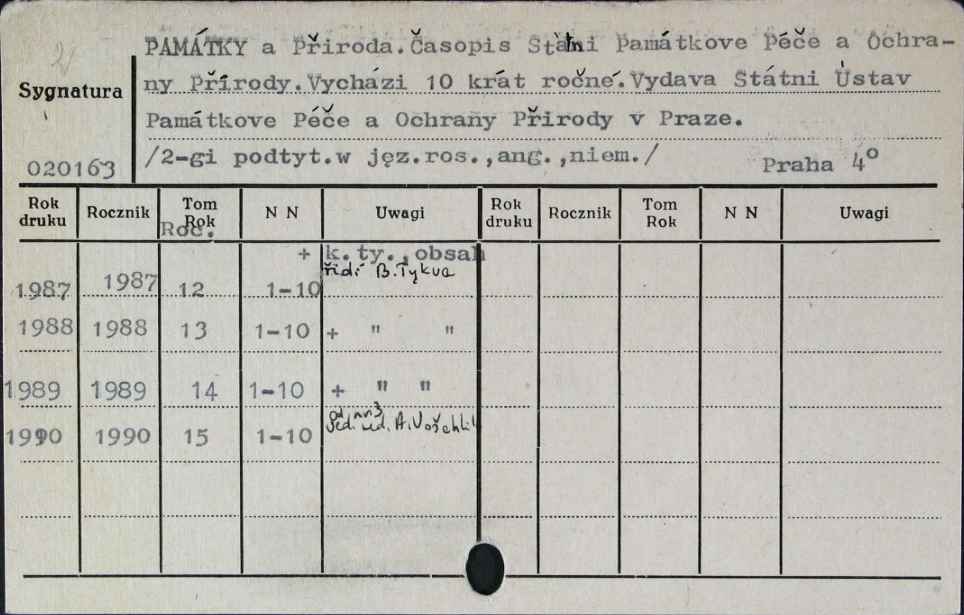 PAMÁTKY a Příroda. Časopis Státni Památkove Péče a Ochra-
ny Přírody. Vycházi 10 krát ročné. Vydava Státni Ústav
Sygnatura
Památkove Péče a Ochrany Přirody v Praze.
/2-gi podtyt. w jęz. ros., ang., niem./ Praha 4°
020163
Rok druku Rocznik Tom Rok N N Uwagi Rok druku Rocznik Tom Rok N N Uwagi
Roc.
+ k. ty., obsah
řídí B. Tykva
1987 1987 12 1-10
1988 1988 13 1-10 + " "
1989 1989 14 1-10 + " "
od nr 3
1990 1990 15 1-10 red. A. Vošahlík